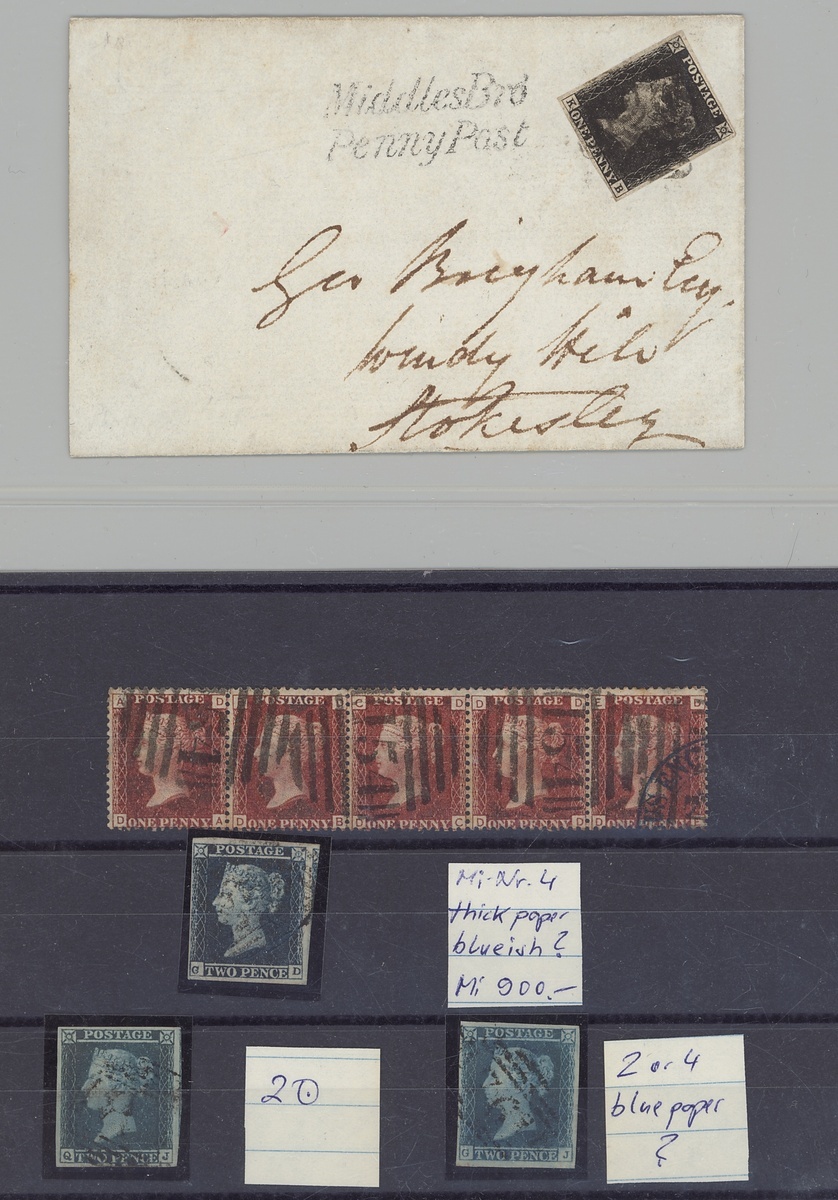 MiddlesBro
Penny Post
POSTAGE
K ONE PENNY B
Geo Brigham Esq.
Windy Hill
Stokesley
A POSTAGE D
POSTAGE
C POSTAGE D
D POSTAGE D
E POSTAGE D
D ONE PENNY A
D ONE PENNY B
D ONE PENNY C
D ONE PENNY D
D ONE PENNY
POSTAGE
G TWO PENCE D
Mi-Nr. 4
thick paper
blueish?
Mi 900.-
POSTAGE
Q TWO PENCE J
2
POSTAGE
G TWO PENCE J
2 or 4
blue paper
?